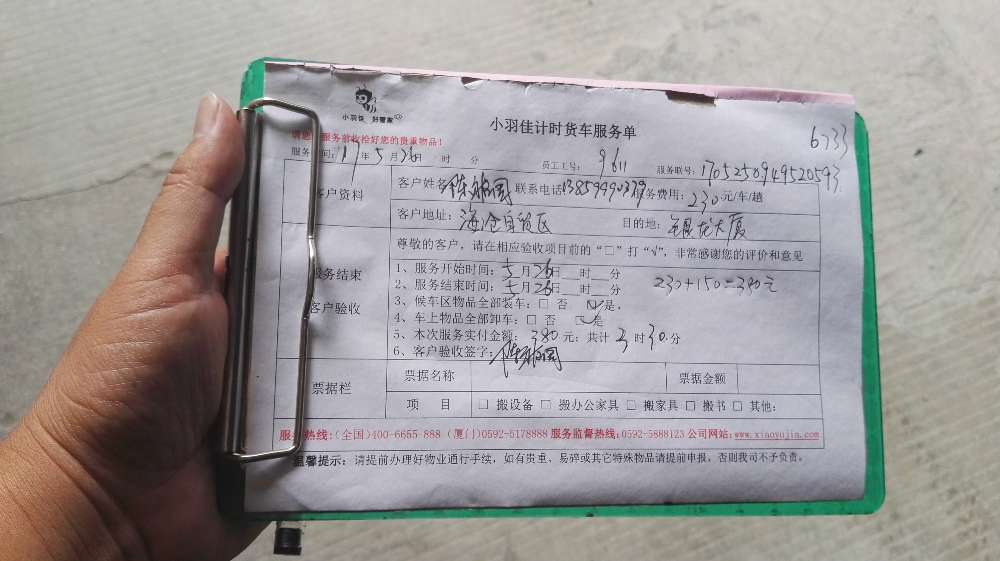 小羽佳 好管家
小羽佳计时货车服务单
6733
服务前收拾好您的贵重物品！
17年5月26日 时 分 员工工号: 9611 服务联号:
客户资料
客户姓名 联系电话 务费用: 230元/车/趟
客户地址: 海仓自贸区 目的地: 银龙大厦
服务结束
客户验收
尊敬的客户，请在相应验收项目前的“□”打“√”，非常感谢您的评价和意见
1、服务开始时间: 5月26日 时 分
2、服务结束时间: 5月26日 时 分
230+150=380元
3、候车区物品全部装车: □ 否 ☑是.
4、车上物品全部卸车: □ 否 ☑是
5、本次服务实付金额: 380元; 共计3时30分
6、客户验收签字:
票据栏
票据名称 票据金额
项 目 □ 搬设备 □ 搬办公家具 □ 搬家具 □ 搬书 □ 其他:
服务热线:(全国)400-6655-888 (厦门)0592-5178888 服务监督热线:0592-5888123 公司网站:www.xiaoyujia.com
温馨提示: 请提前办理好物业通行手续，如有贵重、易碎或其它特殊物品请提前申报，否则我司不予负责。